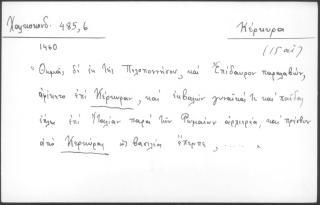 Χαλκοκονδ. 485,6
Κέρκυρα
1460
(15 αἰ)
"Θωμᾶς δὲ ἐκ τῆς Πελοποννήσου, καὶ Ἐπίδαυρον παραλαβών,
ἀφίκετο ἐπὶ Κέρκυραν, καὶ ἐκβαλὼν γυναῖκά τε καὶ παῖδας
ἐπὶ Ἰταλίαν παρὰ τὸν Ῥωμαίων ἀρχιερέα, καὶ πρέσβυν
ἀπὸ Κερκύρας ὡς βασιλέα ἔπεμπε, ..... "